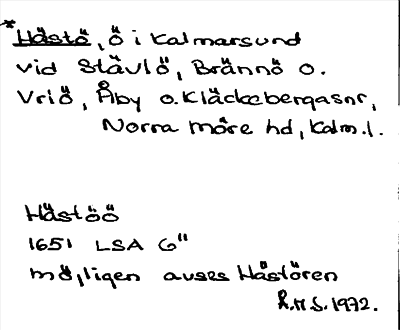 *Hästö, ö i Kalmarsund
vid Stävlö, Brännö o.
Vriö, Åby o. Kläckebergasnr,
Norra Möre hd, Kalm. l.
Hästöö
1651 LSA G"
möjligen avses Hästören
R.H.S. 1972.